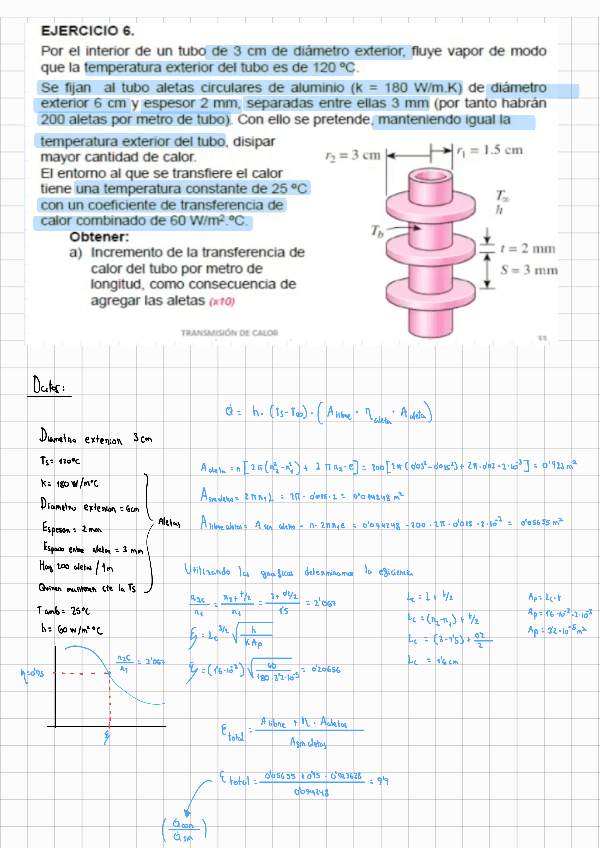 EJERCICIO 6.
Por el interior de un tubo de 3 cm de diámetro exterior, fluye vapor de modo
que la temperatura exterior del tubo es de 120 ºC.
Se fijan al tubo aletas circulares de aluminio (k = 180 W/m.K) de diámetro
exterior 6 cm y espesor 2 mm, separadas entre ellas 3 mm (por tanto habrán
200 aletas por metro de tubo). Con ello se pretende, manteniendo igual la
temperatura exterior del tubo, disipar
mayor cantidad de calor.
El entorno al que se transfiere el calor
tiene una temperatura constante de 25 ºC
con un coeficiente de transferencia de
calor combinado de 60 W/m².ºC.
Obtener:
a) Incremento de la transferencia de
calor del tubo por metro de
longitud, como consecuencia de
agregar las aletas (x10)
r₂ = 3 cm
r₁ = 1.5 cm
T∞
h
T_b
t = 2 mm
S = 3 mm
TRANSMISIÓN DE CALOR
Datos:
Q̇ = h · (Ts - T∞) · (A libre · η aleta · A aleta)
Diametro exterior 3cm
Ts = 120°C
K = 180 W/m°C
Diametro exterior = 6cm
Espesor = 2 mm
Espacio entre aletas = 3 mm
Hay 200 aletas / 1m
Quieren mantener cte la Ts
Aletas
T amb = 25°C
h = 60 W/m²°C
A aleta = n [2π(r₂² - r₁²) + 2π r₂ · e] = 200 [2π(0'03² - 0'015²) + 2π · 0'03 · 2·10⁻³] = 0'923 m²
A sin aletas = 2π r₁ L = 2π · 0'015 · 1 = 0'094248 m²
A libre aletas = A sin aletas - n · 2π r₁ e = 0'094248 - 200 · 2π · 0'015 · 2·10⁻³ = 0'05655 m²
Utilizando las graficas determinamos la eficiencia
r₂c/r₁ = (r₂ + t/2)/r₁ = (3 + 0'2/2)/1'5 = 2'067
ξ = Lc^(3/2) √(h/(K Ap))
ξ = (1'6·10⁻²)^(3/2) √(60/(180 · 3'2·10⁻⁵)) = 0'20656
Lc = L + t/2
Lc = (r₂ - r₁) + t/2
Lc = (3 - 1'5) + 0'2/2
Lc = 1'6 cm
Ap = Lc · t
Ap = 1'6·10⁻² · 2·10⁻³
Ap = 3'2·10⁻⁵ m²
η = 0'95
r₂c/r₁ = 2'067
ξ
ε total = (A libre + η · A aletas)/A sin aletas
ε total = (0'05655 + 0'95 · 0'923628)/0'094248 = 9'9
(Q̇ con/Q̇ sin)